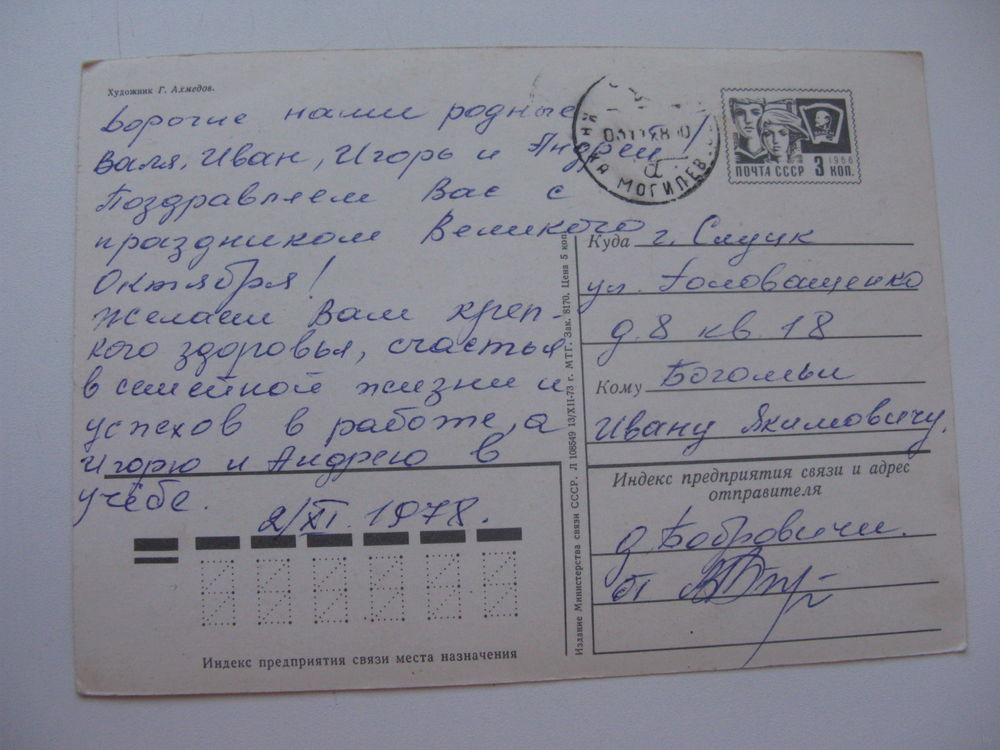 Художник Г. Ахмедов.
Дорогие наши родные
Валя, Иван, Игорь и Андрей!
Поздравляем Вас с
праздником Великого
Октября!
Желаем Вам креп-
кого здоровья, счастья
в семейной жизни и
успехов в работе, а
Игорю и Андрею в
учёбе.
2/XI. 1978.
Индекс предприятия связи места назначения
Издание Министерства связи СССР. Л 108549 13/XII-73 г. МТГ. Зак. 8170. Цена 5 коп.
МОГИЛЕВ
ПОЧТА СССР 3 КОП.
1966
Куда г. Слуцк
ул. Головащенко
д. 8 кв. 18
Кому Богомья
Ивану Якимовичу.
Индекс предприятия связи и адрес
отправителя
д. Бобровичи.
от